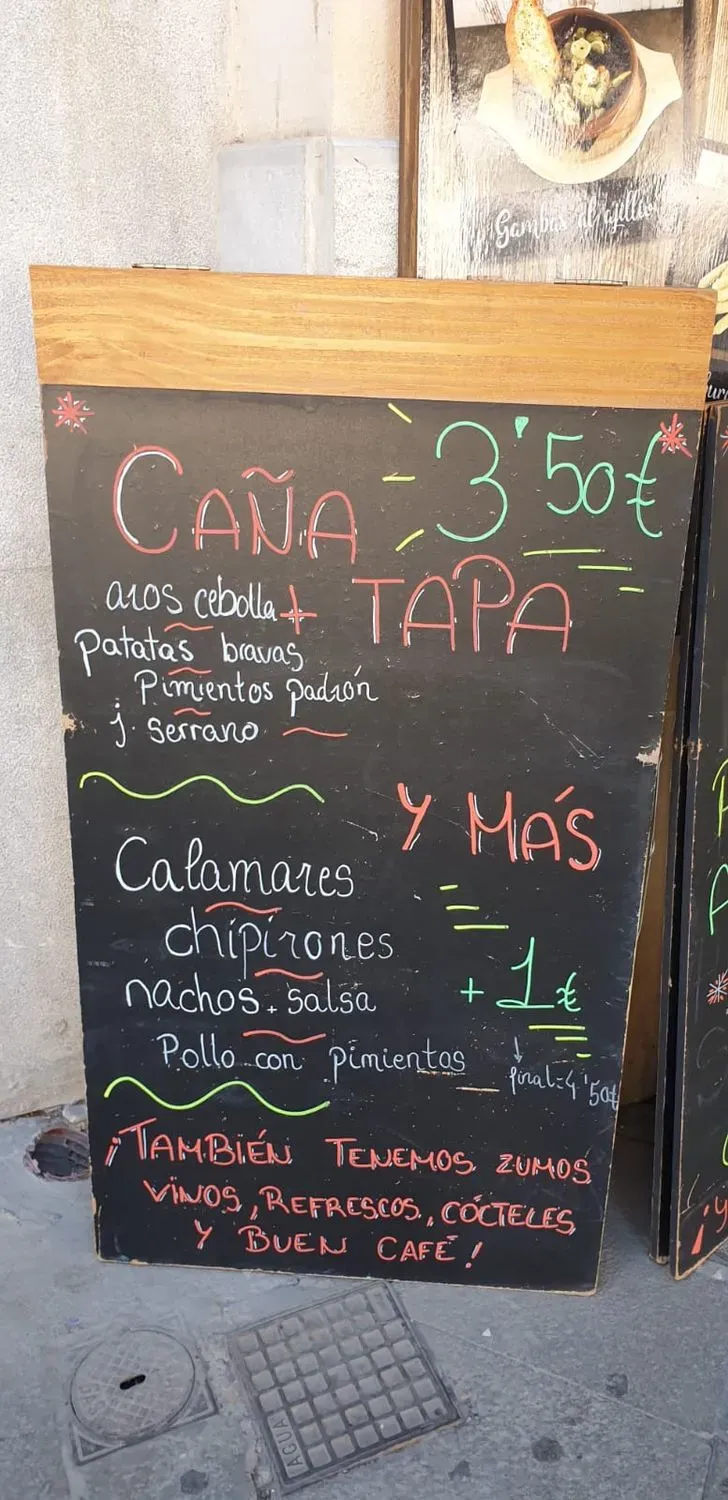 Gambas al ajillo
CAÑA 3'50€
+ TAPA
aros cebolla
patatas bravas
Pimientos padrón
j. serrano
Y MÁS
Calamares
chipirones
nachos + salsa
+ 1€
Pollo con pimientos
final = 4'50€
¡TAMBIÉN TENEMOS ZUMOS
VINOS, REFRESCOS, CÓCTELES
Y BUEN CAFÉ!
AGUA